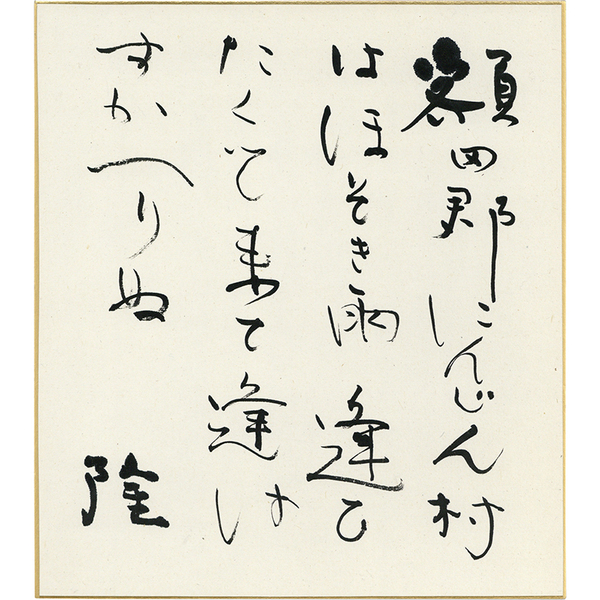 額田郡にんじん村
はほそき雨逢ひ
たくて来て逢は
すかへりぬ
隆